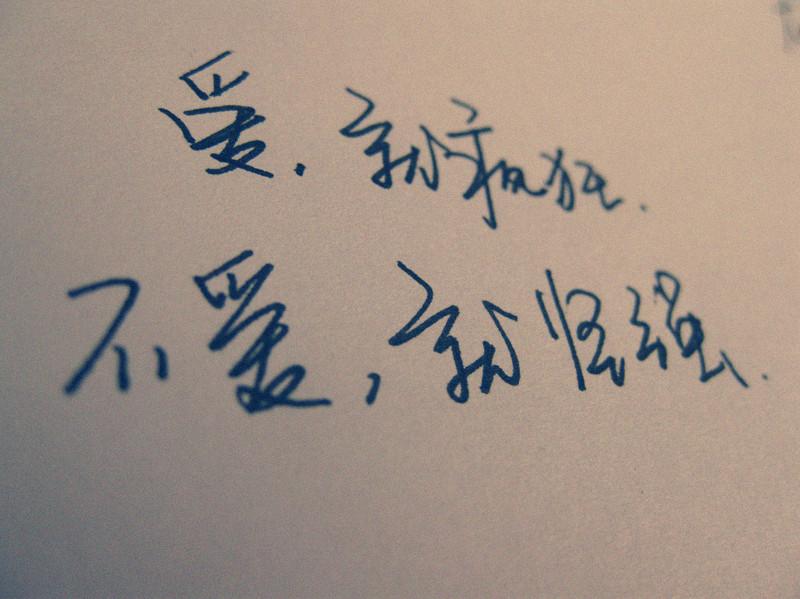 爱，就疯狂.
不爱，就坚强.